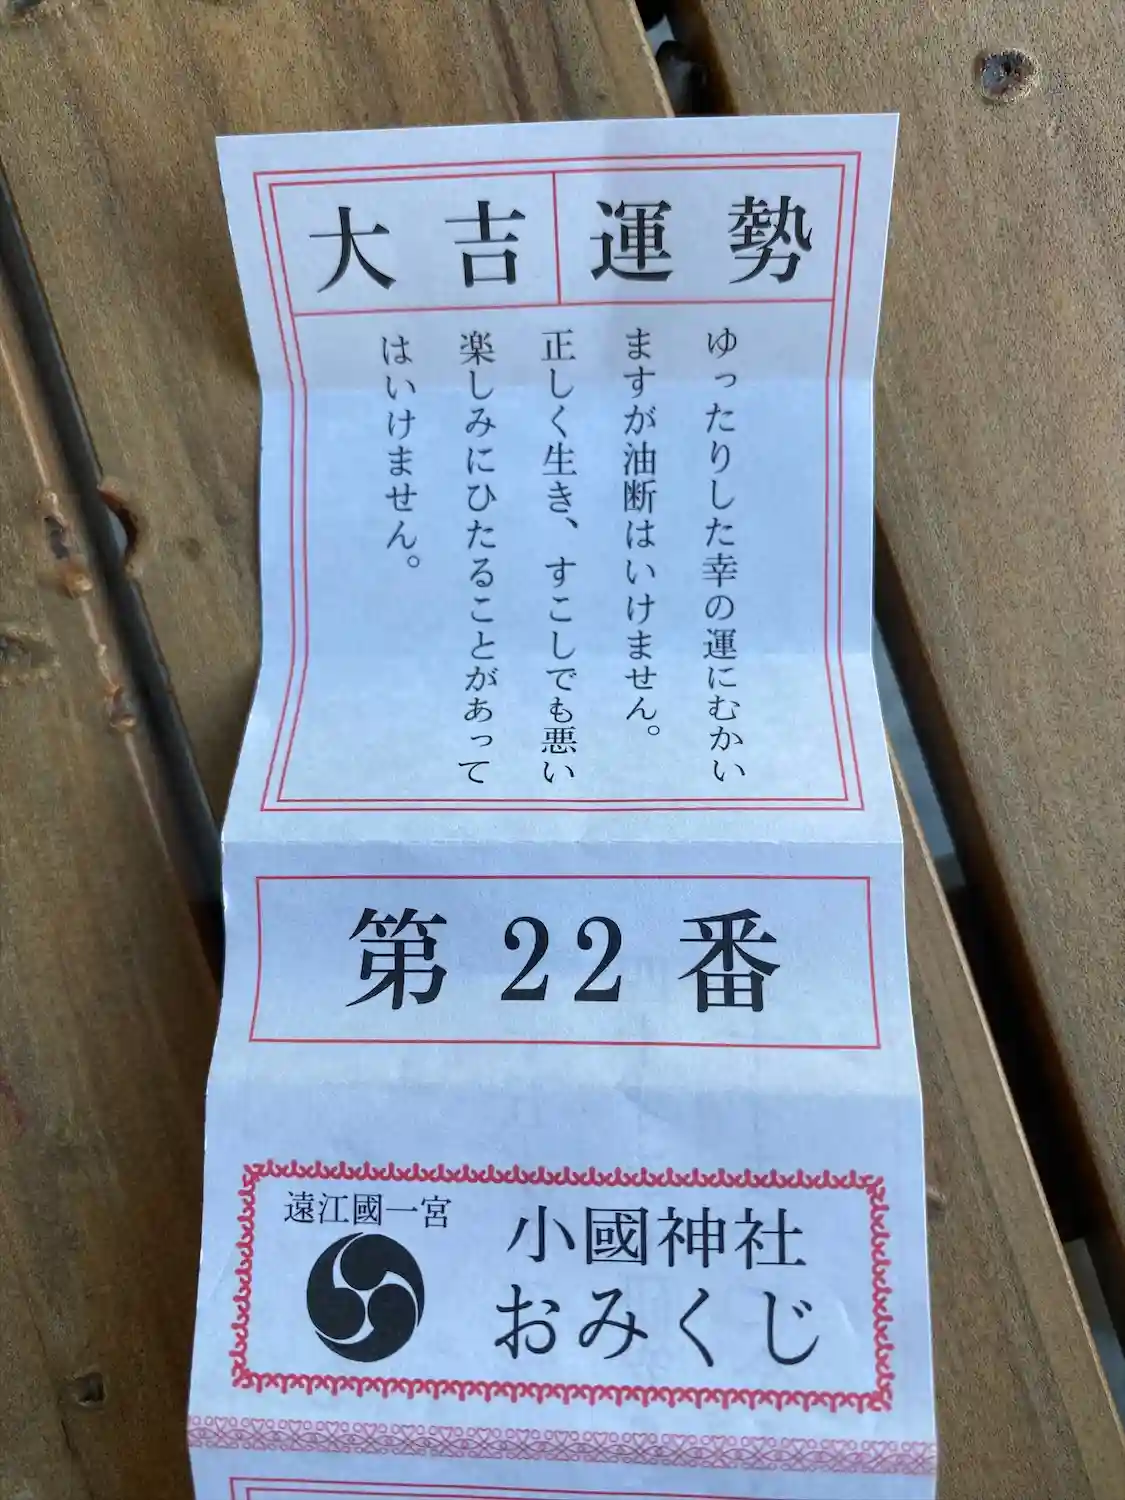 大吉 運勢
ゆったりした幸の運にむかい
ますが油断はいけません。
正しく生き、すこしでも悪い
楽しみにひたることがあって
はいけません。
第22番
遠江國一宮
小國神社
おみくじ